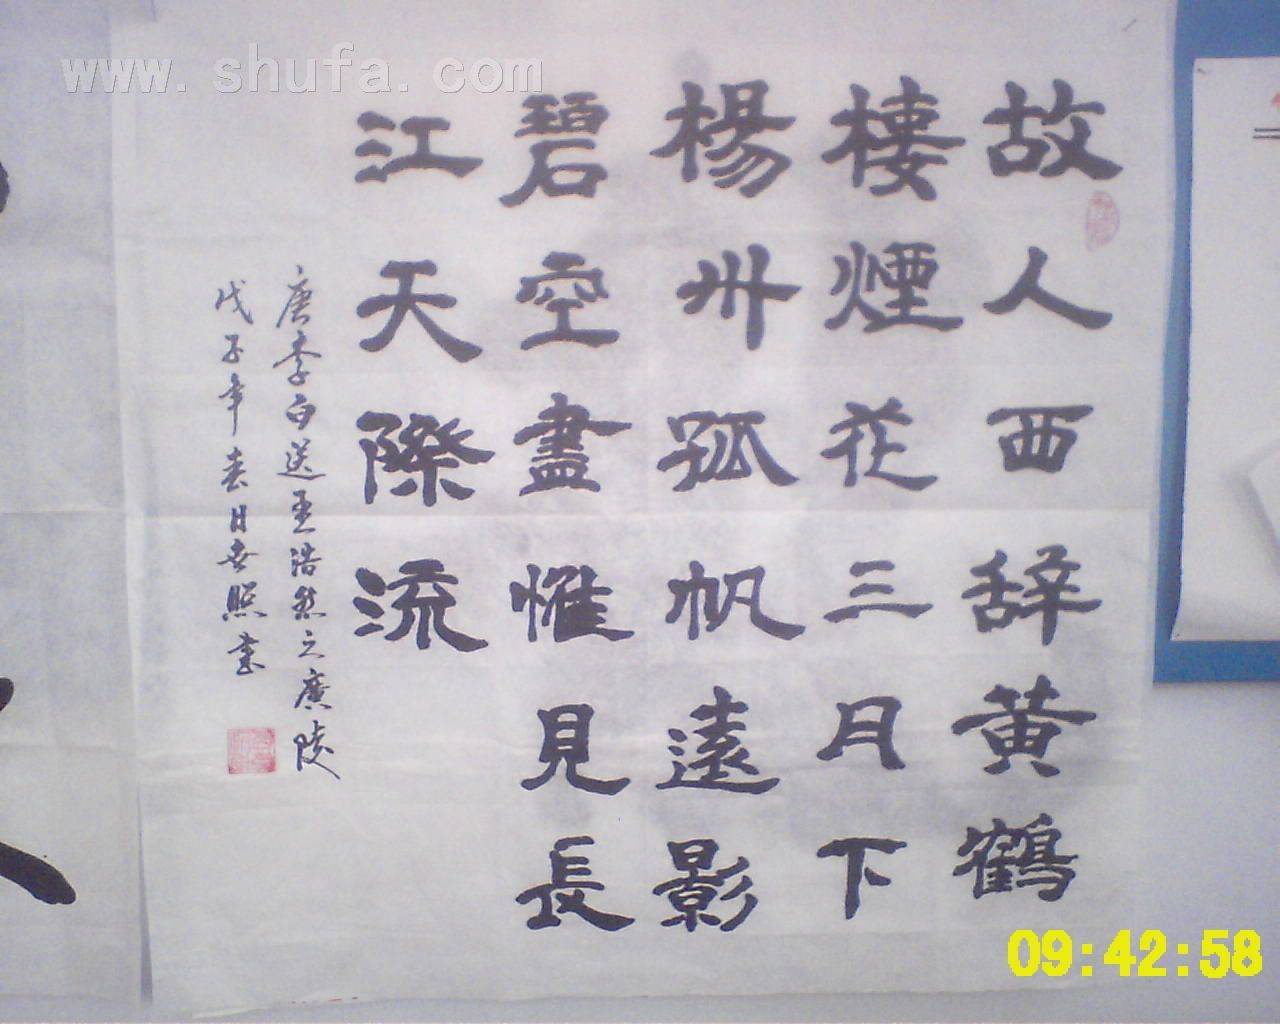 www.shufa.com
故人西辞黄鶴
樓煙花三月下
楊州孤帆遠影
碧空盡惟見長
江天際流
唐李白送孟浩然之廣陵
戊子年春日世照書
09:42:58